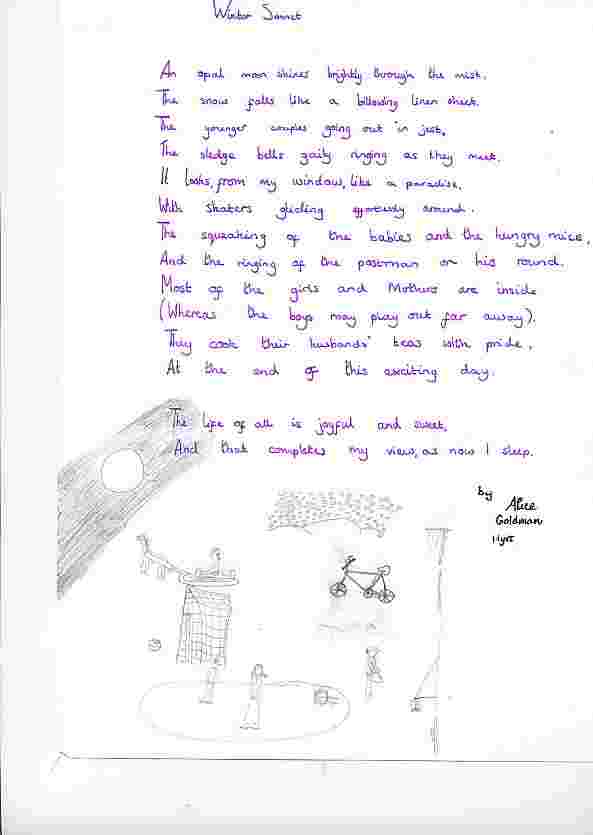 Winter Sonnet
An opal moon shines brightly through the mist.
The snow falls like a billowing linen sheet.
The younger couples going out 'in just,
The sledge bells gaily ringing as they meet.
It looks, from my window, like a paradise,
With skaters gliding effortlessly around.
The squeaking of the babies and the hungry mice,
And the ringing of the postman on his round.
Most of the girls and Mothers are inside
(Whereas the boys may play out far away).
They cook their husbands' teas with pride,
At the end of this exciting day.
The life of all is joyful and sweet,
And that completes my view, as now I sleep.
by Alice
Goldman
11yrs